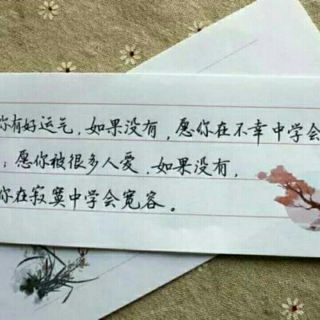 你有好运气,如果没有,愿你在不幸中学会
;愿你被很多人爱,如果没有,
你在寂寞中学会宽容。